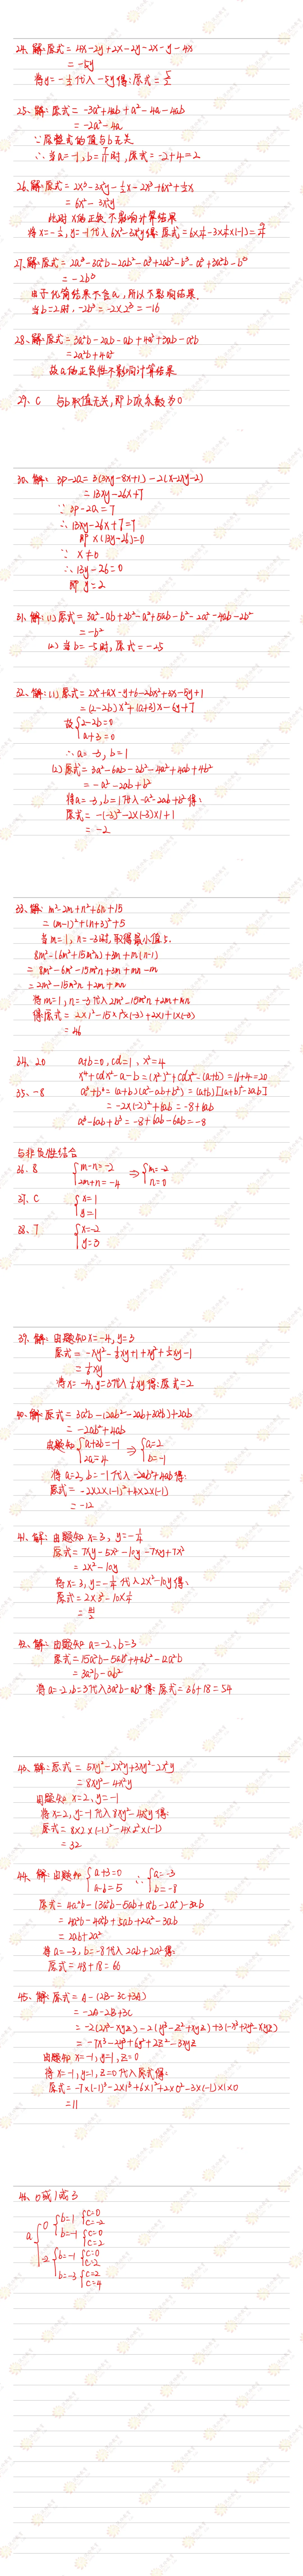 24、解:原式 = 4x-2y+2x-2y-2x-y-4x
= -5y
将y=-½代入-5y得:原式=5/2
25、解:原式 = -3a²+4ab+a²-4a-4ab
= -2a²-4a
∵原整式的值与b无关
∴当a=-1,b=1/11时,原式=-2+4=2
26、解:原式= 2x³-3x²y-½x-2x³+6x²+½x
= 6x²-3x²y
此时x的正负不影响计算结果
27、解:原式=2a³-3a²b-2ab²-a³+2ab²-b³-a³+3a²b-b³
= -2b³
由于化简结果不含a,所以不影响结果.
当b=2时,-2b³=-2×2³=-16
28、解:原式=3a²b-2ab-ab+4a²+3ab-a²b
=2a²b+4a²
故a的正负性不影响计算结果
29、C 与b取值无关,即b项系数为0
30、解: 3p-2Q=3(3xy-8x+1)-2(x-2xy-2)
=13xy-26x+7
∵3p-2Q=7
∴13xy-26x+7=7
即x(13y-26)=0
∵ x≠0
∴13y-26=0
即y=2
31、解:(1)原式=3a²-ab+2b²-a²+5ab-b²-2a²-4ab-2b²
=-b²
(2)当b=-5时,原式=-25
32、解:(1)原式=2x²+ax-y+6-2bx²+3x-5y+1
=(2-2b)x²+(a+3)x-6y+7
故{2-2b=0
a+3=0
∴a=-3,b=1
(2)原式=3a²-6ab-3b²-4a²+4ab+4b²
=-a²-2ab+b²
将a=-3,b=1代入-a²-2ab+b²得:
原式=-(-3)²-2×(-3)×1+1
=-2
33、解:m²-2m+n²+6n+15
=(m-1)²+(n+3)²+5
当m=1,n=-3时,取得最小值5.
8m²-(6m²+15m²n)+3m+m(n-1)
=8m²-6m²-15m²n+3m+mn-m
=2m²-15m²n+2m+mn
将m=1,n=-3代入2m²-15m²n+2m+mn
得原式=2×1²-15×1²×(-3)+2×1+1×(-3)
=46
34、20 a+b=0,cd=1,x²=4
x⁴+cdx²-a-b=(x²)²+cdx²-(a+b)=16+4=20
35、-8 a³+b³=(a+b)(a²-ab+b²)=(a+b)[(a+b)²-3ab]
=-2×(-2)²+6ab=-8+6ab
a³-6ab+b³=-8+6ab-6ab=-8
与非负性结合
36、8 {m-n=-2
2m+n=-4 ⇒{m=-2
n=0
37、C {x=1
y=1
38、7 {x=-2
y=3
39、解:由题知x=-4,y=3
将x=-4,y=3代入-⅙xy得:原式=2
40、解:原式=3a²b-(2ab²-2ab+3a²b)+2ab
=-2ab²+4ab
由题知{a+3b=-1
2a=4 ⇒{a=2
b=-1
将a=2,b=-1代入-2ab²+4ab得:
原式=-2×2×(-1)²+4×2×(-1)
=-12
41、解:由题知x=3,y=-¼
原式=7xy-5x²-10y-7xy+7x²
=2x²-10y
将x=3,y=-¼代入2x²-10y得:
=41/2
42、解:由题知a=-2,b=3
原式=15a²b-5ab²+4ab²-12a²b
=3a²b-ab²
将a=-2,b=3代入3a²b-ab²得:原式=36+18=54
43、解:原式=5xy²-2x²y+3xy²-2x²y
=8xy²-4x²y
由题知x=2,y=-1
将x=2,y=-1代入8xy²-4x²y得:
原式=8×2×(-1)²-4×2²×(-1)
=32
44、解:由题知{a+3=0
a-b=5 ∴{a=-3
b=-8
原式=4a²b-(3a²b-5ab+a²b-2a²)-3ab
=4a²b-4a²b+5ab+2a²-3ab
=2ab+2a²
将a=-3,b=-8代入2ab+2a²得:
原式=48+18=66
45、解:原式=A-(2B-3C+3A)
=-2A-2B+3C
=-2(2x³-xyz)-2(y³-z²+xyz)+3(-x³+2y²-xyz)
=-7x³-2y³+6y²+2z²-3xyz
由题知x=-1,y=1,z=0
将x=-1,y=1,z=0代入原式得:
原式=-7×(-1)³-2×1³+6×1²+2×0²-3×(-1)×1×0
=11
46、0或1或3
a{0 {b=1 {c=0
c=-2
b=-1 {c=0
c=2
-2 {b=-1 {c=0
c=2
b=-3 {c=2
c=4